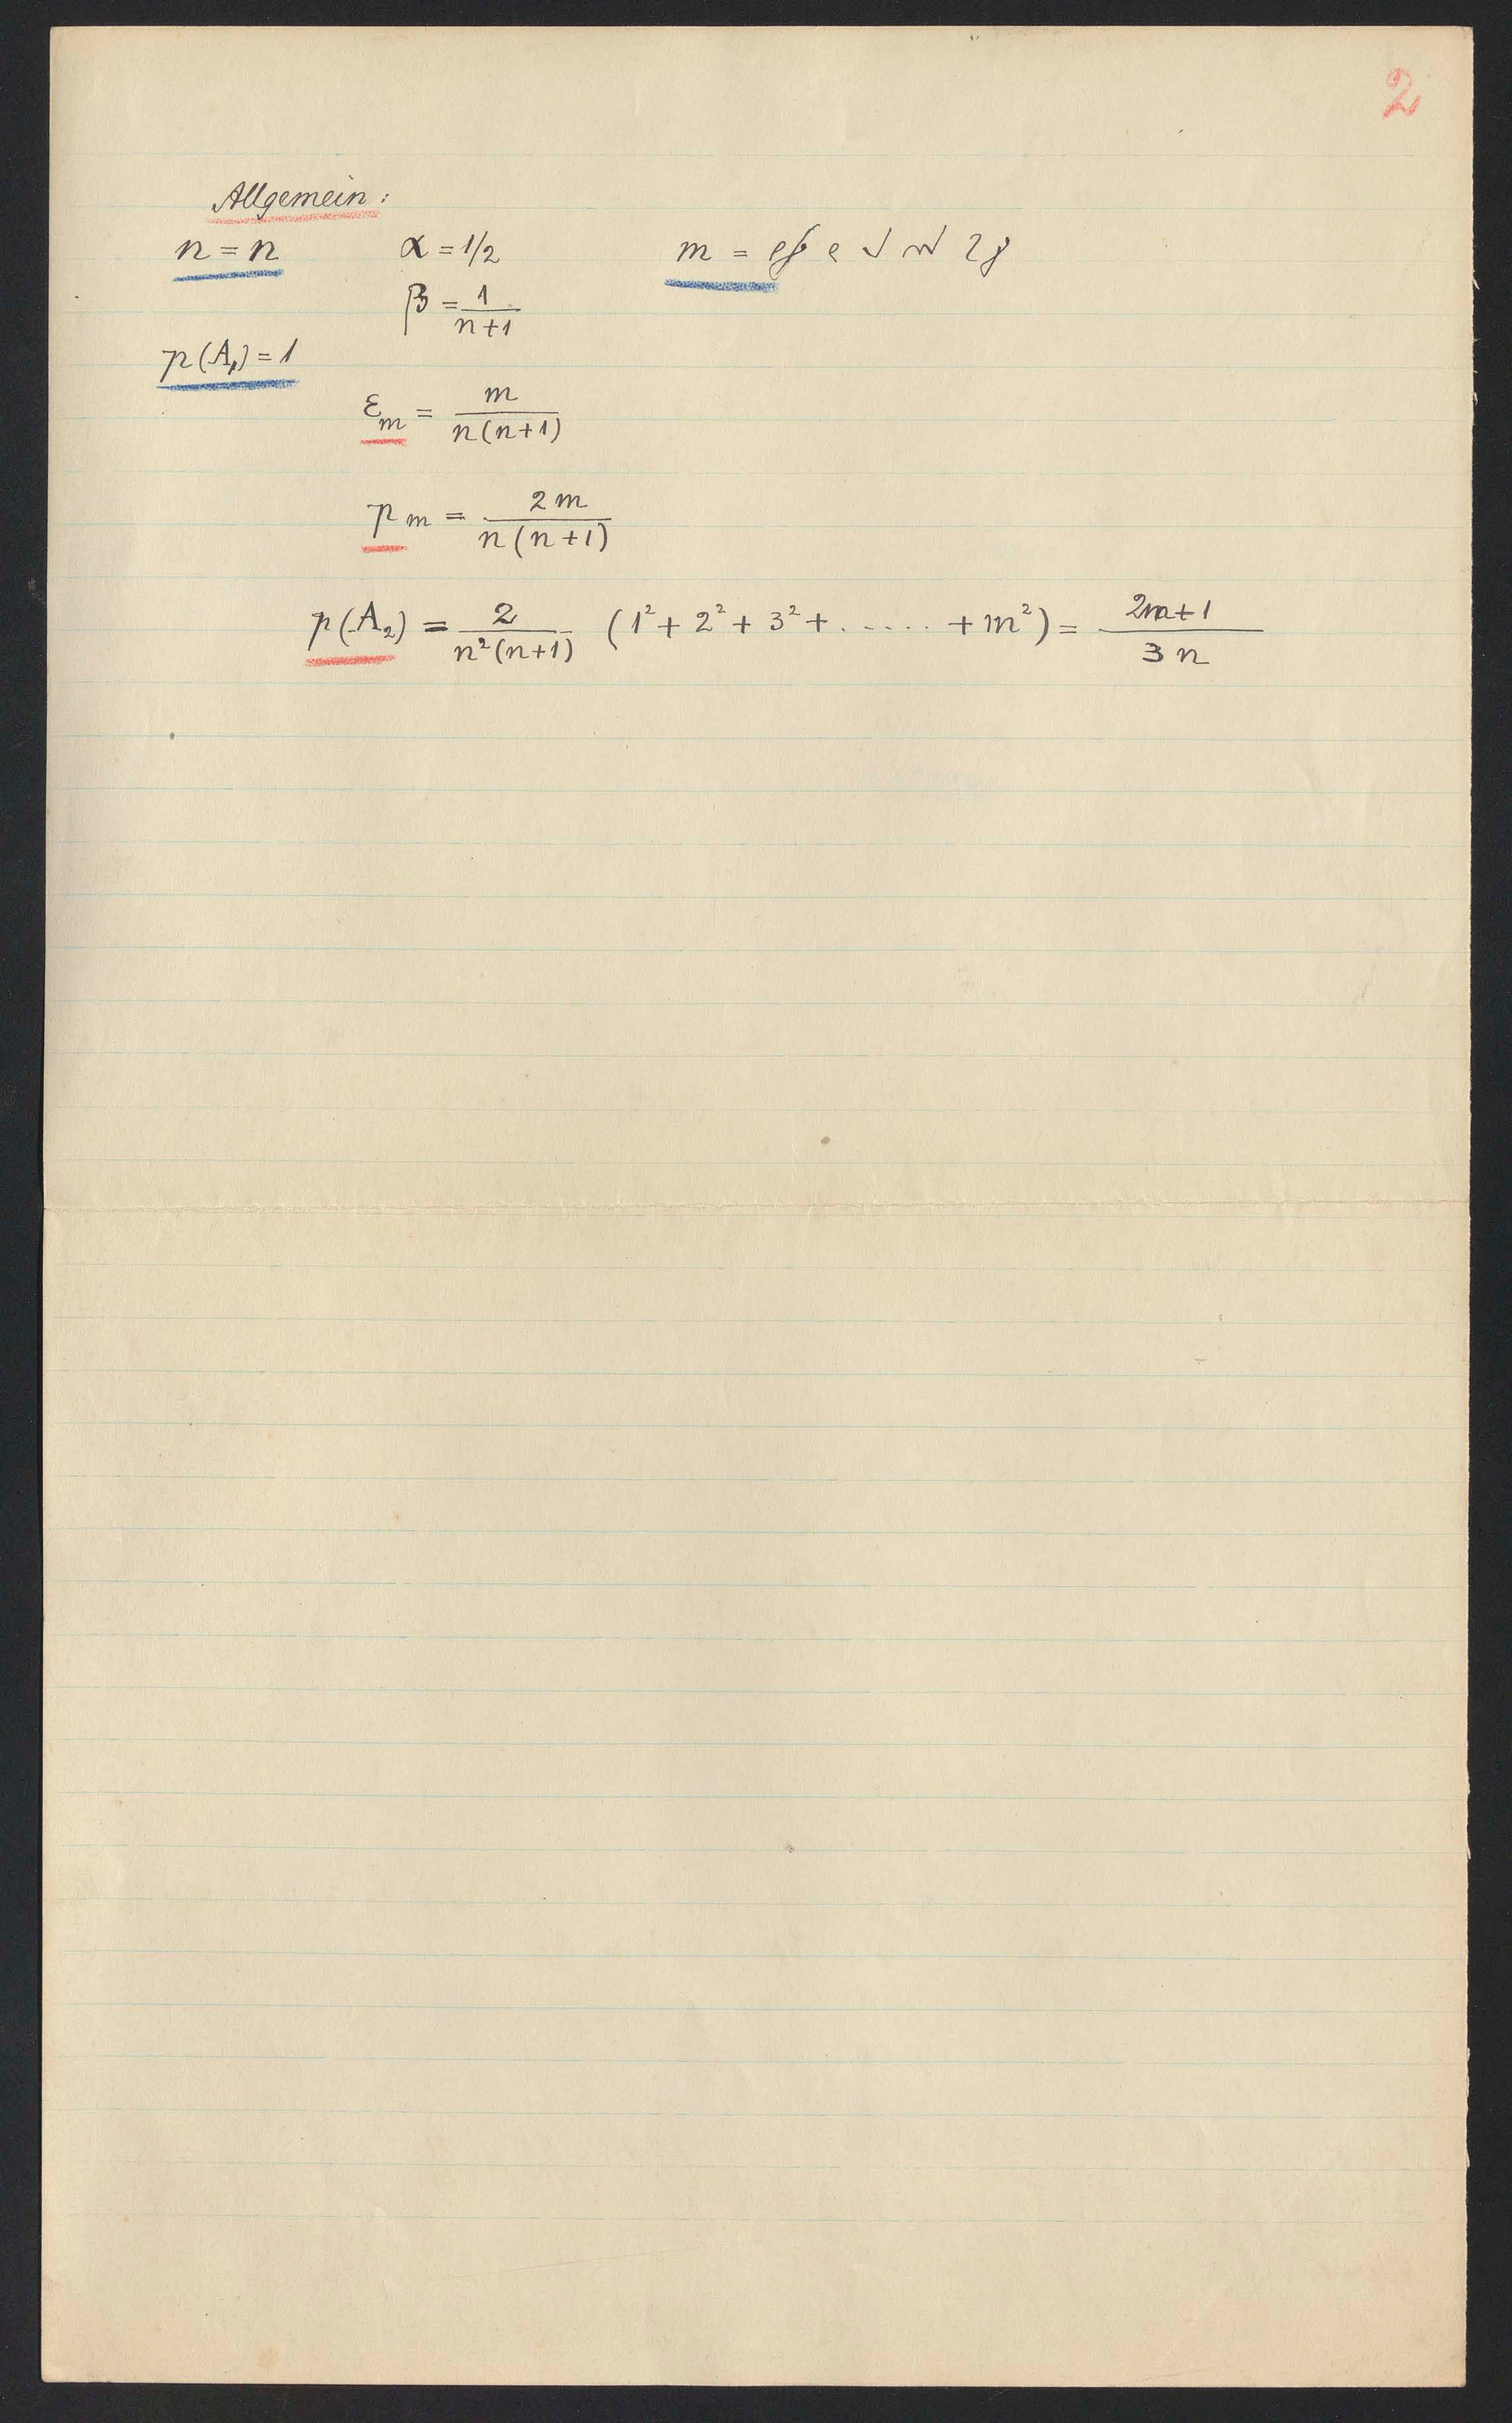 2
Allgemein:
n = n α = 1/2 m =
β = 1/(n+1)
p(A₁) = 1
ε_m = m/(n(n+1))
p_m = 2m/(n(n+1))
p(A₂) = 2/(n²(n+1)) (1² + 2² + 3² + ...... + m²) = (2n+1)/(3n)